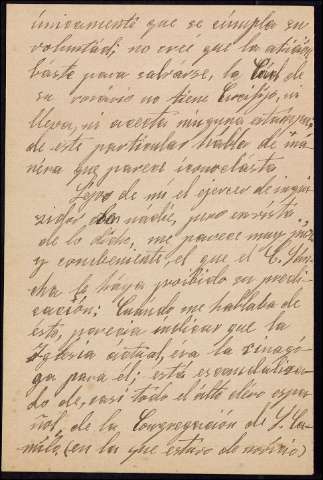 únicamente que se cumpla su
voluntad; no creé que la
baste para salvarse, la Cruz de
su rosario no tiene Crucifijo, ni
lleva, ni acepta ninguna estampa,
de este particular habla de ma-
nera que pareci iconoclasta
Lejos de mi el ejercer de inqui-
sidor de nadie, pero en vista
de lo dicho, me parece muy
y combeniente, el que el C. Sán-
cha le haya proibido su predi-
cación; Cuando me hablaba de
esto, parecia indicar que la
Iglesia actual, éra la sinago-
ga para él; está escandaliza-
do de, casi todo el álto cléro espa-
ñol, de la Congregación de S. Ca-
milo, (en la que estuvo de novicio)